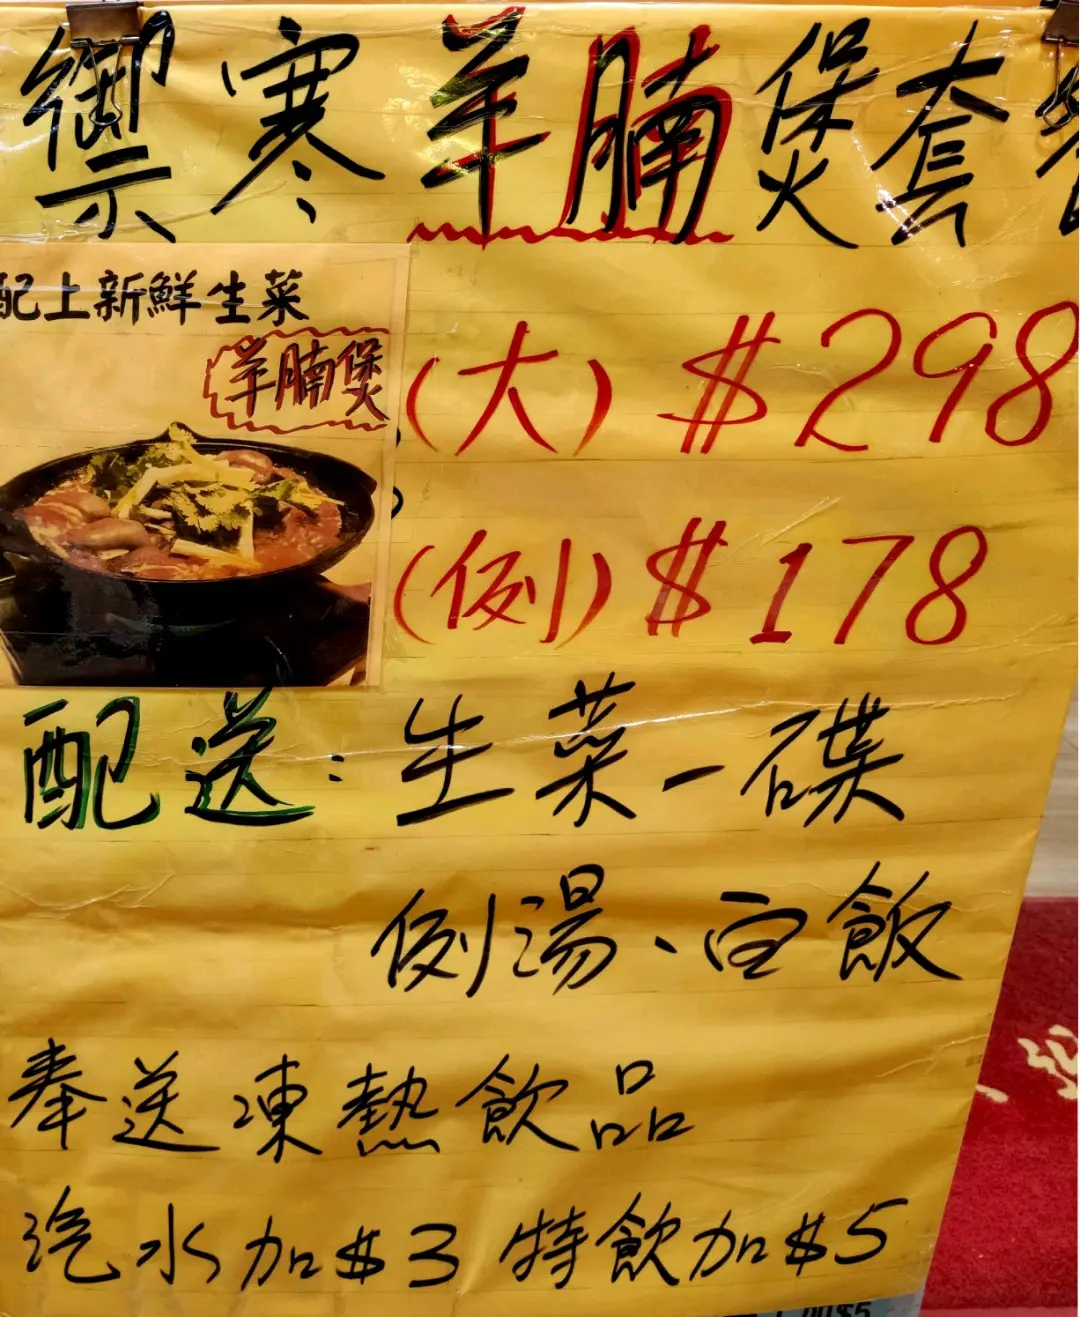 禦寒羊腩煲套餐
配上新鮮生菜
羊腩煲
(大) $298
(例) $178
配送：生菜一碟
例湯、白飯
奉送凍熱飲品
汽水加$3 特飲加$5